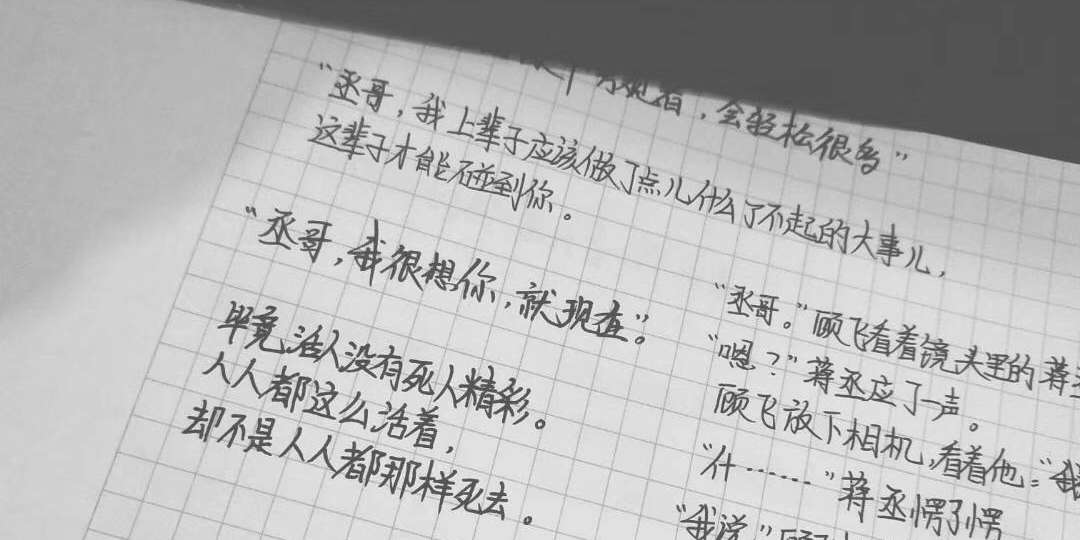 ，会轻松很多”
“丞哥，我上辈子应该做了点儿什么了不起的大事儿，
这辈子才能碰到你。
“丞哥，我很想你，就现在”。
毕竟活人没有死人精彩。
人人都这么活着，
却不是人人都那样死去。
“丞哥。”顾飞看着镜头里的蒋
“嗯？”蒋丞应了一声。
顾飞放下相机，看着他：“我
“什……”蒋丞愣了愣
“我说”顾